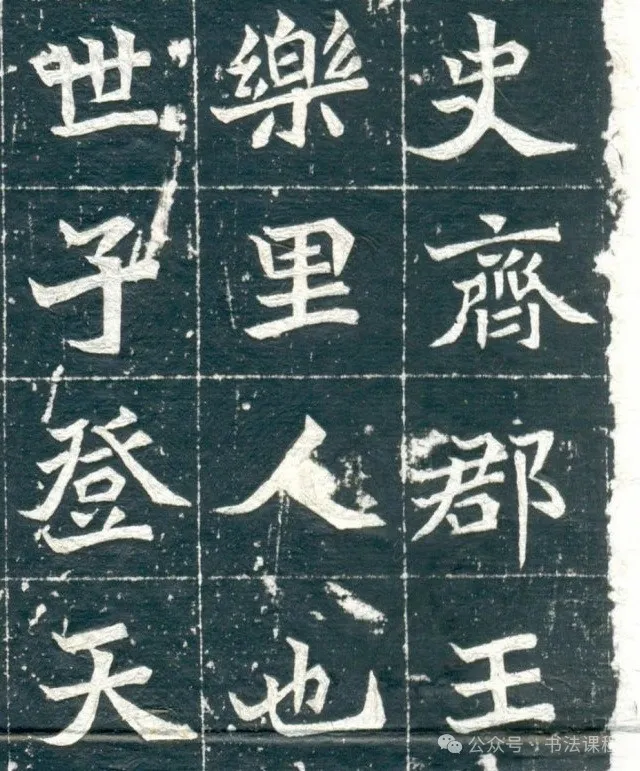 史齊郡王
樂里人也
世子登天
公众号·书法课程